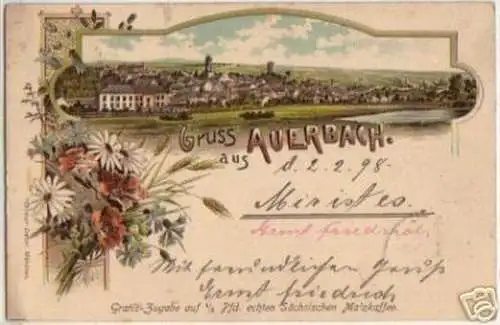 Gruss
aus AUERBACH.
d. 2. 2. 98.
Ernst Friedrich
Mit freundlichen Gruß
Ernst Friedrich
Gratis-Zugabe auf ½ Pfd. echten Sächsischen Malzkaffee.